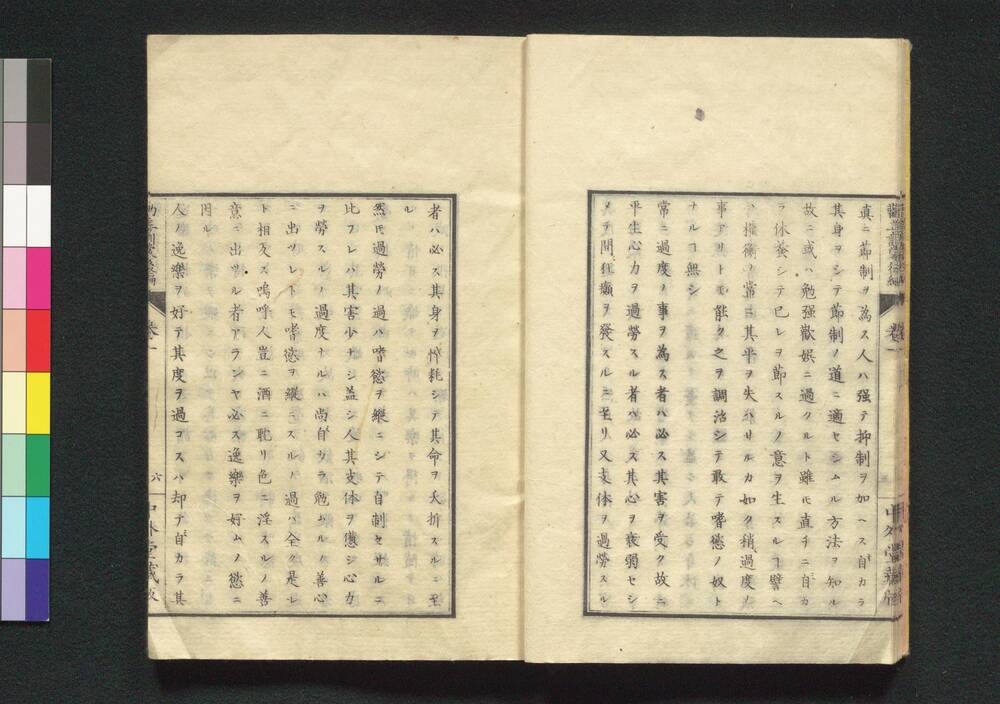 真ニ節制ヲ為ス人ハ强テ抑制ヲ加ヘス自カラ
其身ヲシテ節制ノ道ニ適セシムル方法ヲ知ル
故ニ或ハ勉强歡娯ニ過クルト雖𪜈直チニ自カ
ラ休養シテ已レヲ節スルノ意ヲ生スルヿ譬ヘ
ハ權衡ノ常ニ其平ヲ失ハサルカ如ク稍過度ノ
事アリトモ能ク之ヲ調治シテ敢テ嗜慾ノ奴ト
ナルヿ無シ
常ニ過度ノ事ヲ為ス者ハ必ス其害ヲ受ク故ニ
平生心力ヲ過勞スル者ハ必ス其心ヲ衰弱セシ
メヲ間狂癲ヲ發スルニ至リ又支体ヲ過勞スル
者ハ必ス其身ヲ悴耗シテ其命ヲ夭折スルニ至
ル
然𪜈過勞ノ過ハ嗜慾ヲ縱ニシテ自制セサルニ
比フレハ其害少ナシ盖シ人其支体ヲ懲シ心力
ヲ勞スルノ過度ナルハ尚自カラ勉ムルノ善心
ニ出ツレトモ嗜慾ヲ縱ニスルノ過ハ全ク是レ
ト相反ス嗚呼人豈ニ酒ニ耽リ色ニ淫スルノ善
意ニ出ツル者アランヤ必ス逸樂ヲ好ムノ慾ニ
因ル
人ノ逸樂ヲ好テ其度ヲ過コスハ却テ自カラ其
卷一
六